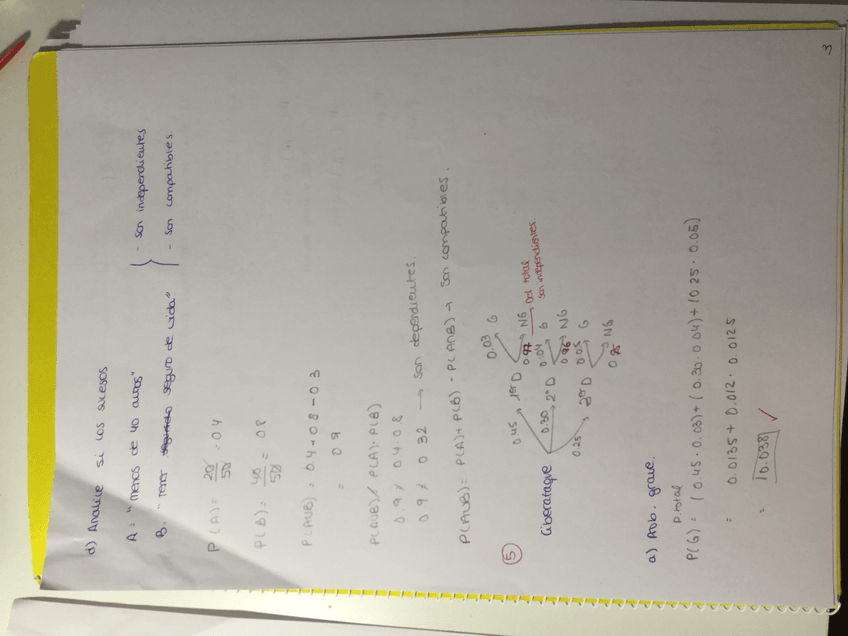 d) Analice si los sucesos
A = "menos de 40 años" } - son independientes
B = "Tener seguro de vida" - son compatibles
P(A) = 20/50 = 0.4
P(B) = 40/50 = 0.8
P(AUB) = 0.4 + 0.8 - 0.3
= 0.9
P(AUB) ≠ P(A)·P(B)
0.9 ≠ 0.4·0.8
0.9 ≠ 0.32 → son dependientes.
P(AUB) = P(A) + P(B) - P(A∩B) → son compatibles.
5
0.03 G
0.45 1er D
0.97 NG → Del total
son independientes.
Ciberataque
0.30 2º D
0.04 G
0.96 NG
0.25 3er D
0.05 G
0.95 NG
a) Prob. grave.
P. total
P(G) = (0.45 · 0.03) + (0.30 · 0.04) + (0.25 · 0.05)
= 0.0135 + 0.012 · 0.0125
= 0.038 ✓
3